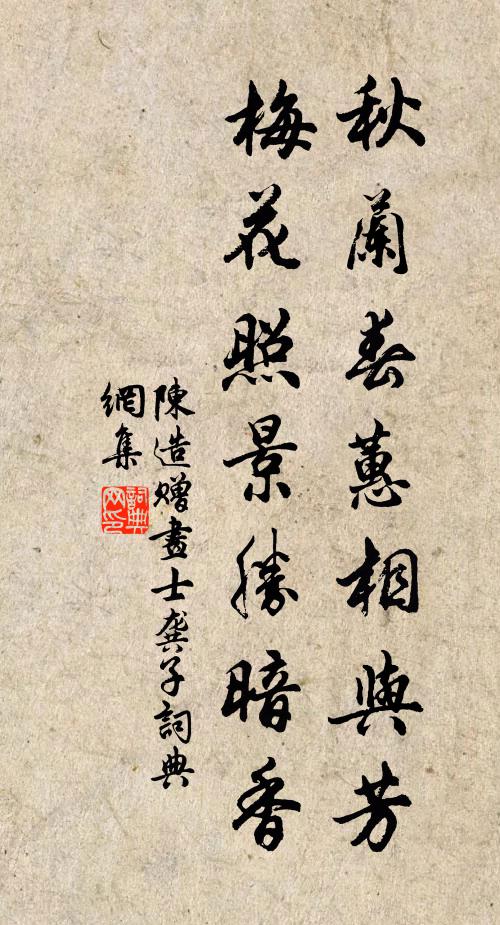 秋蘭春蕙相與芳
梅花照景勝暗香
陳造贈畫士龔子詞典
網集
詞典
网印